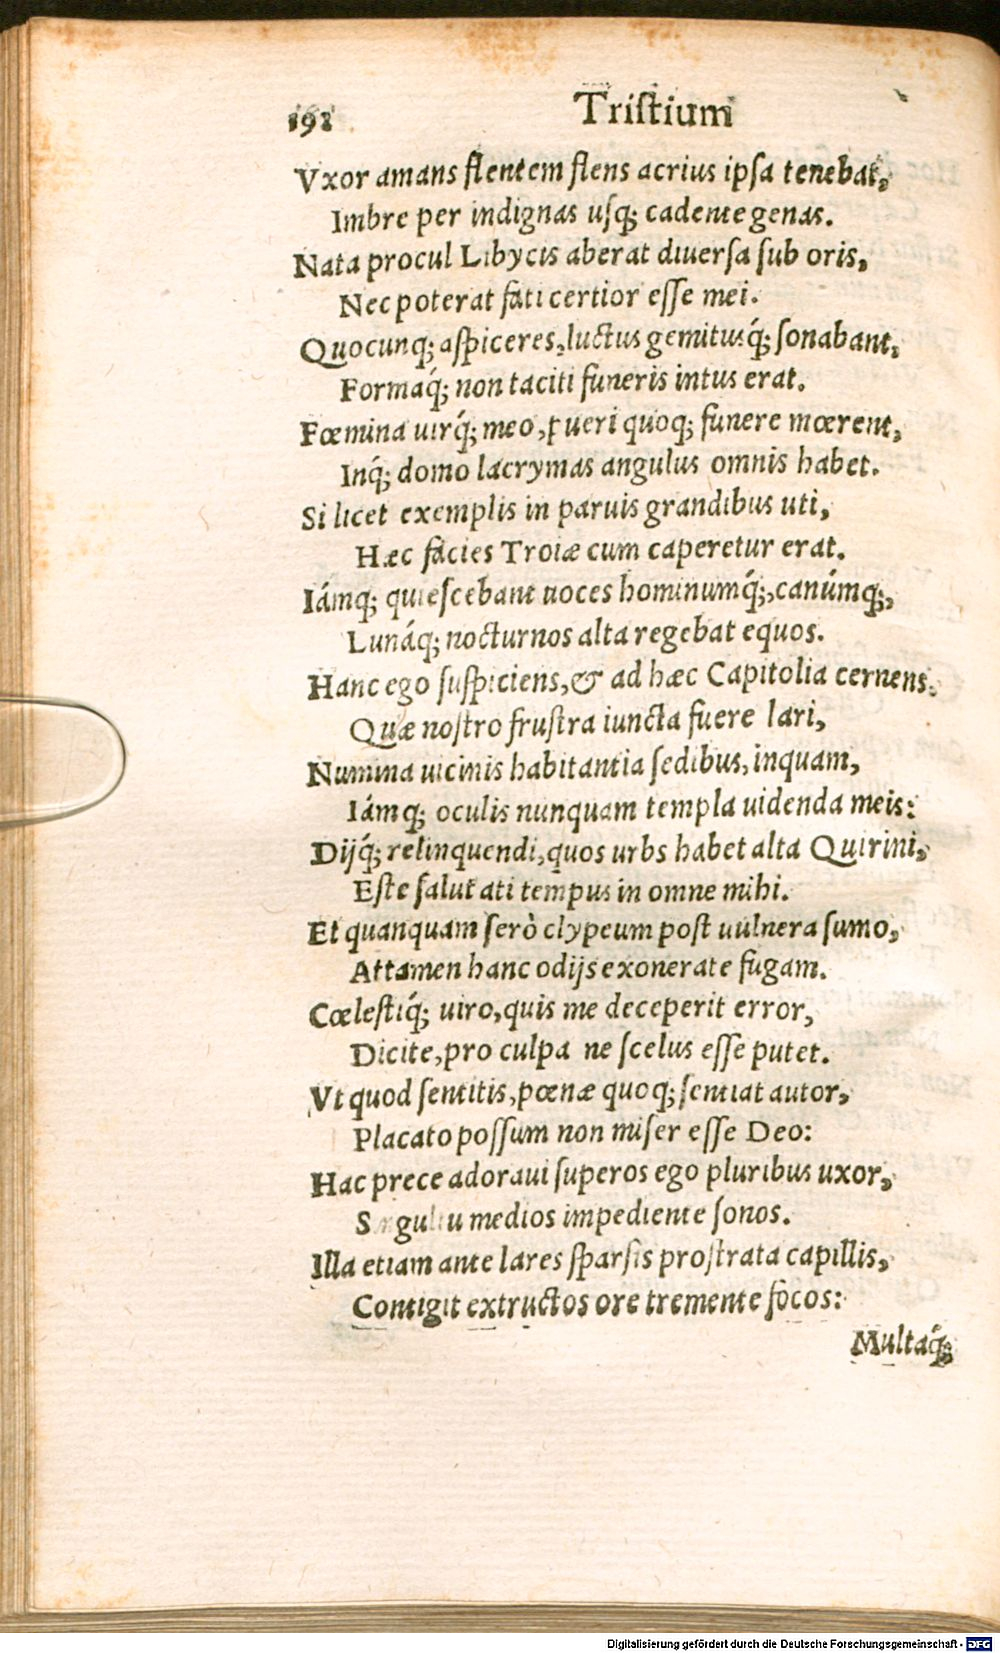 191 Tristium
Vxor amans flentem flens acrius ipsa tenebat,
Imbre per indignas usq; cadente genas.
Nata procul Libycis aberat diuersa sub oris,
Nec poterat fati certior esse mei.
Quocunq; aspiceres, luctus gemitusq́; sonabant,
Formaq́; non taciti funeris intus erat.
Fœmina uirq́; meo, pueri quoq; funere mœrent,
Inq́; domo lacrymas angulus omnis habet.
Si licet exemplis in paruis grandibus uti,
Hæc facies Troiæ cum caperetur erat.
Iámq; quiescebant uoces hominumq́;, canúmq;,
Lunáq; nocturnos alta regebat equos.
Hanc ego suspiciens, & ad hæc Capitolia cernens.
Quæ nostro frustra iuncta fuere lari,
Numina uicinis habitantia sedibus, inquam,
Iámq; oculis nunquam templa uidenda meis:
Dijq́; relinquendi, quos urbs habet alta Quirini,
Este salutati tempus in omne mihi.
Et quanquam serò clypeum post uulnera sumo,
Attamen hanc odijs exonerate fugam.
Cœlestiq́; uiro, quis me deceperit error,
Dicite, pro culpa ne scelus esse putet.
Vt quod sentitis, pœnæ quoq; sentiat autor,
Placato possum non miser esse Deo:
Hac prece adoraui superos ego pluribus uxor,
medios impediente sonos.
Illa etiam ante lares sparsis prostrata capillis,
Contigit extructos ore tremente focos:
Multaq́;
Digitalisierung gefördert durch die Deutsche Forschungsgemeinschaft - DFG